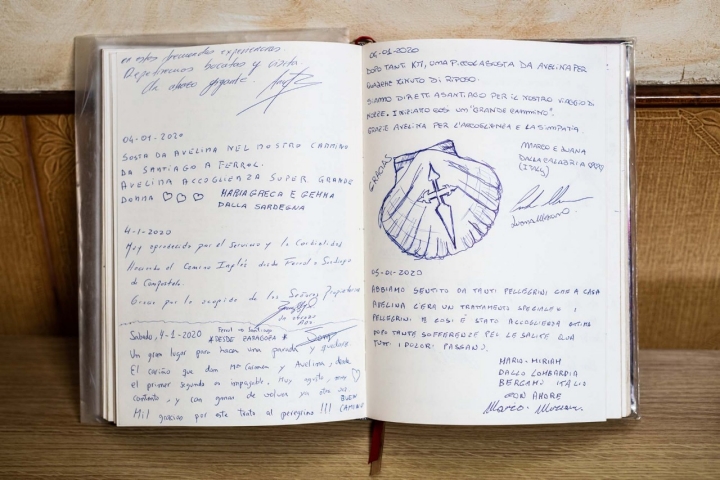 en estos fecundas experiencias.
Repetiremos bocatas y visita.
Un abrazo gigante.
04-01-2020
SOSTA DA AVELINA NEL NOSTRO CAMMINO
DA SANTIAGO A FERROL.
AVELINA ACCOGLIENZA SUPER GRANDE
DONNA ♡ ♡ ♡ MARIAGRECA E GEMMA
DALLA SARDEGNA
4-1-2020
Muy agradecido por el Servicio y la Cordialidad
el Camino Inglés desde Ferrol a Santiago
de Compostela.
Gracias por la acogida de los Señores
Sabado, 4-1-2020 Ferrol → Santiago
* DESDE ZARAGOZA *
Un gran lugar para hacer una parada y quedarse.
El cariño que dan Mª Carmen y Avelina, desde
el primer segundo es impagable. Muy agusto, muy ♡
contento, y con ganas de volver ya otra vez. BUEN
Mil gracias por este trato al peregrino !!! CAMINO
06-01-2020
DOPO TANTI KM, UNA PICCOLA SOSTA DA AVELINA PER
QUALCHE MINUTO DI RIPOSO.
SIAMO DIRETTI A SANTIAGO PER IL NOSTRO VIAGGIO DI
NOZZE. INIZIATO COSÌ UN "GRANDE CAMMINO".
GRAZIE AVELINA PER L'ACCOGLIENZA E LA SIMPATIA.
MARCO E LUANA
DALLA CALABRIA
(ITALY)
GRACIAS
05-01-2020
ABBIAMO SENTITO DA TANTI PELLEGRINI CHE A CASA
AVELINA C'ERA UN TRATTAMENTO SPECIALE X I
PELLEGRINI E COSÌ È STATO ACCOGLIENZA OTTIMA
DOPO TANTE SOFFERENZE PER LE SALITE QUA
TUTTI I DOLORI PASSANO.
MARIO-MIRIAM
DALLA LOMBARDIA
BERGAMO ITALIA
CON AMORE